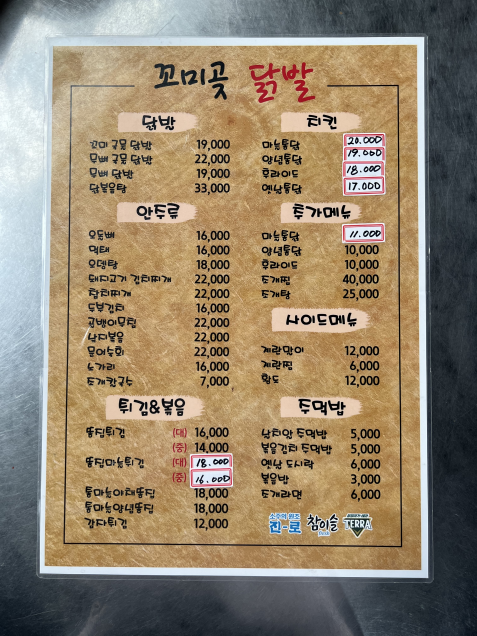 꼬미곳 닭발
닭발
꼬미 국물 닭발 19,000
무뼈 국물 닭발 22,000
무뼈 닭발 19,000
닭볶음탕 33,000
안주류
오돌뼈 16,000
먹태 16,000
오뎅탕 18,000
돼지고기 김치찌개 22,000
참치찌개 22,000
두부김치 16,000
골뱅이무침 22,000
낙지볶음 22,000
문어숙회 22,000
노가리 16,000
조개칼국수 7,000
튀김&볶음
똥집튀김 (대) 16,000
(중) 14,000
똥집마늘튀김 (대) 18.000
(중) 16.000
통마늘야채똥집 18,000
통마늘양념똥집 18,000
감자튀김 12,000
치킨
마늘통닭 20.000
양념통닭 19.000
후라이드 18.000
옛날통닭 17.000
추가메뉴
마늘통닭 11.000
양념통닭 10,000
후라이드 10,000
조개찜 40,000
조개탕 25,000
사이드메뉴
계란말이 12,000
계란찜 6,000
황도 12,000
주먹밥
날치알 주먹밥 5,000
볶음김치 주먹밥 5,000
옛날 도시락 6,000
볶음밥 3,000
조개라면 6,000
소주의 원조
진-로 참이슬 TERRA